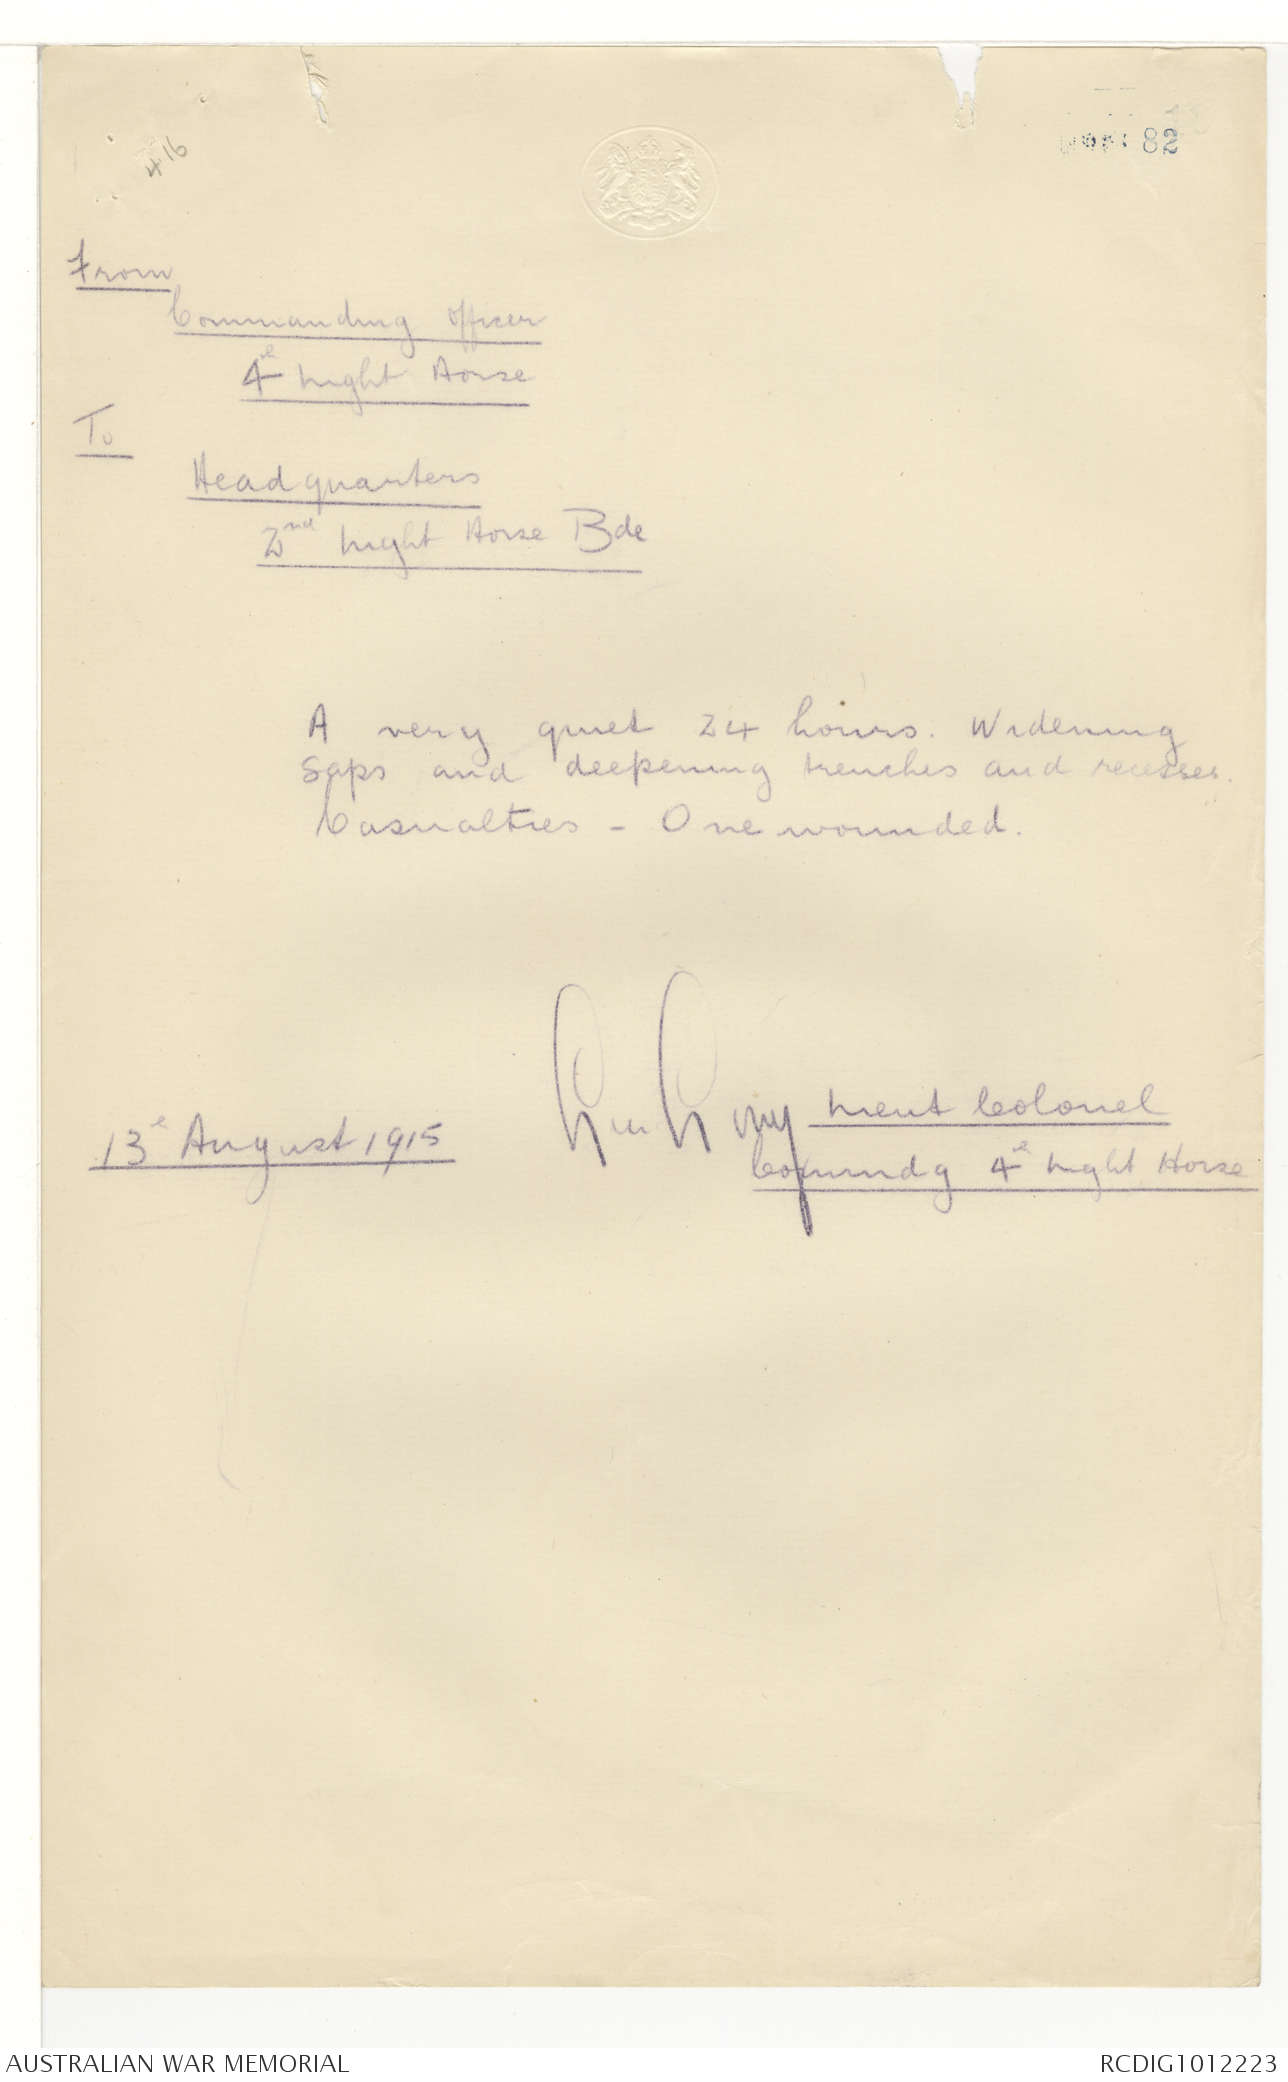 416
82
From
Commanding Officer
4th Light Horse
To
Headquarters
2nd Light Horse Bde
A very quiet 24 hours. Widening
Saps and deepening trenches and recesses.
Casualties - One wounded.
Lieut Colonel
13th August 1915
Commdg 4th Light Horse
AUSTRALIAN WAR MEMORIAL
RCDIG1012223